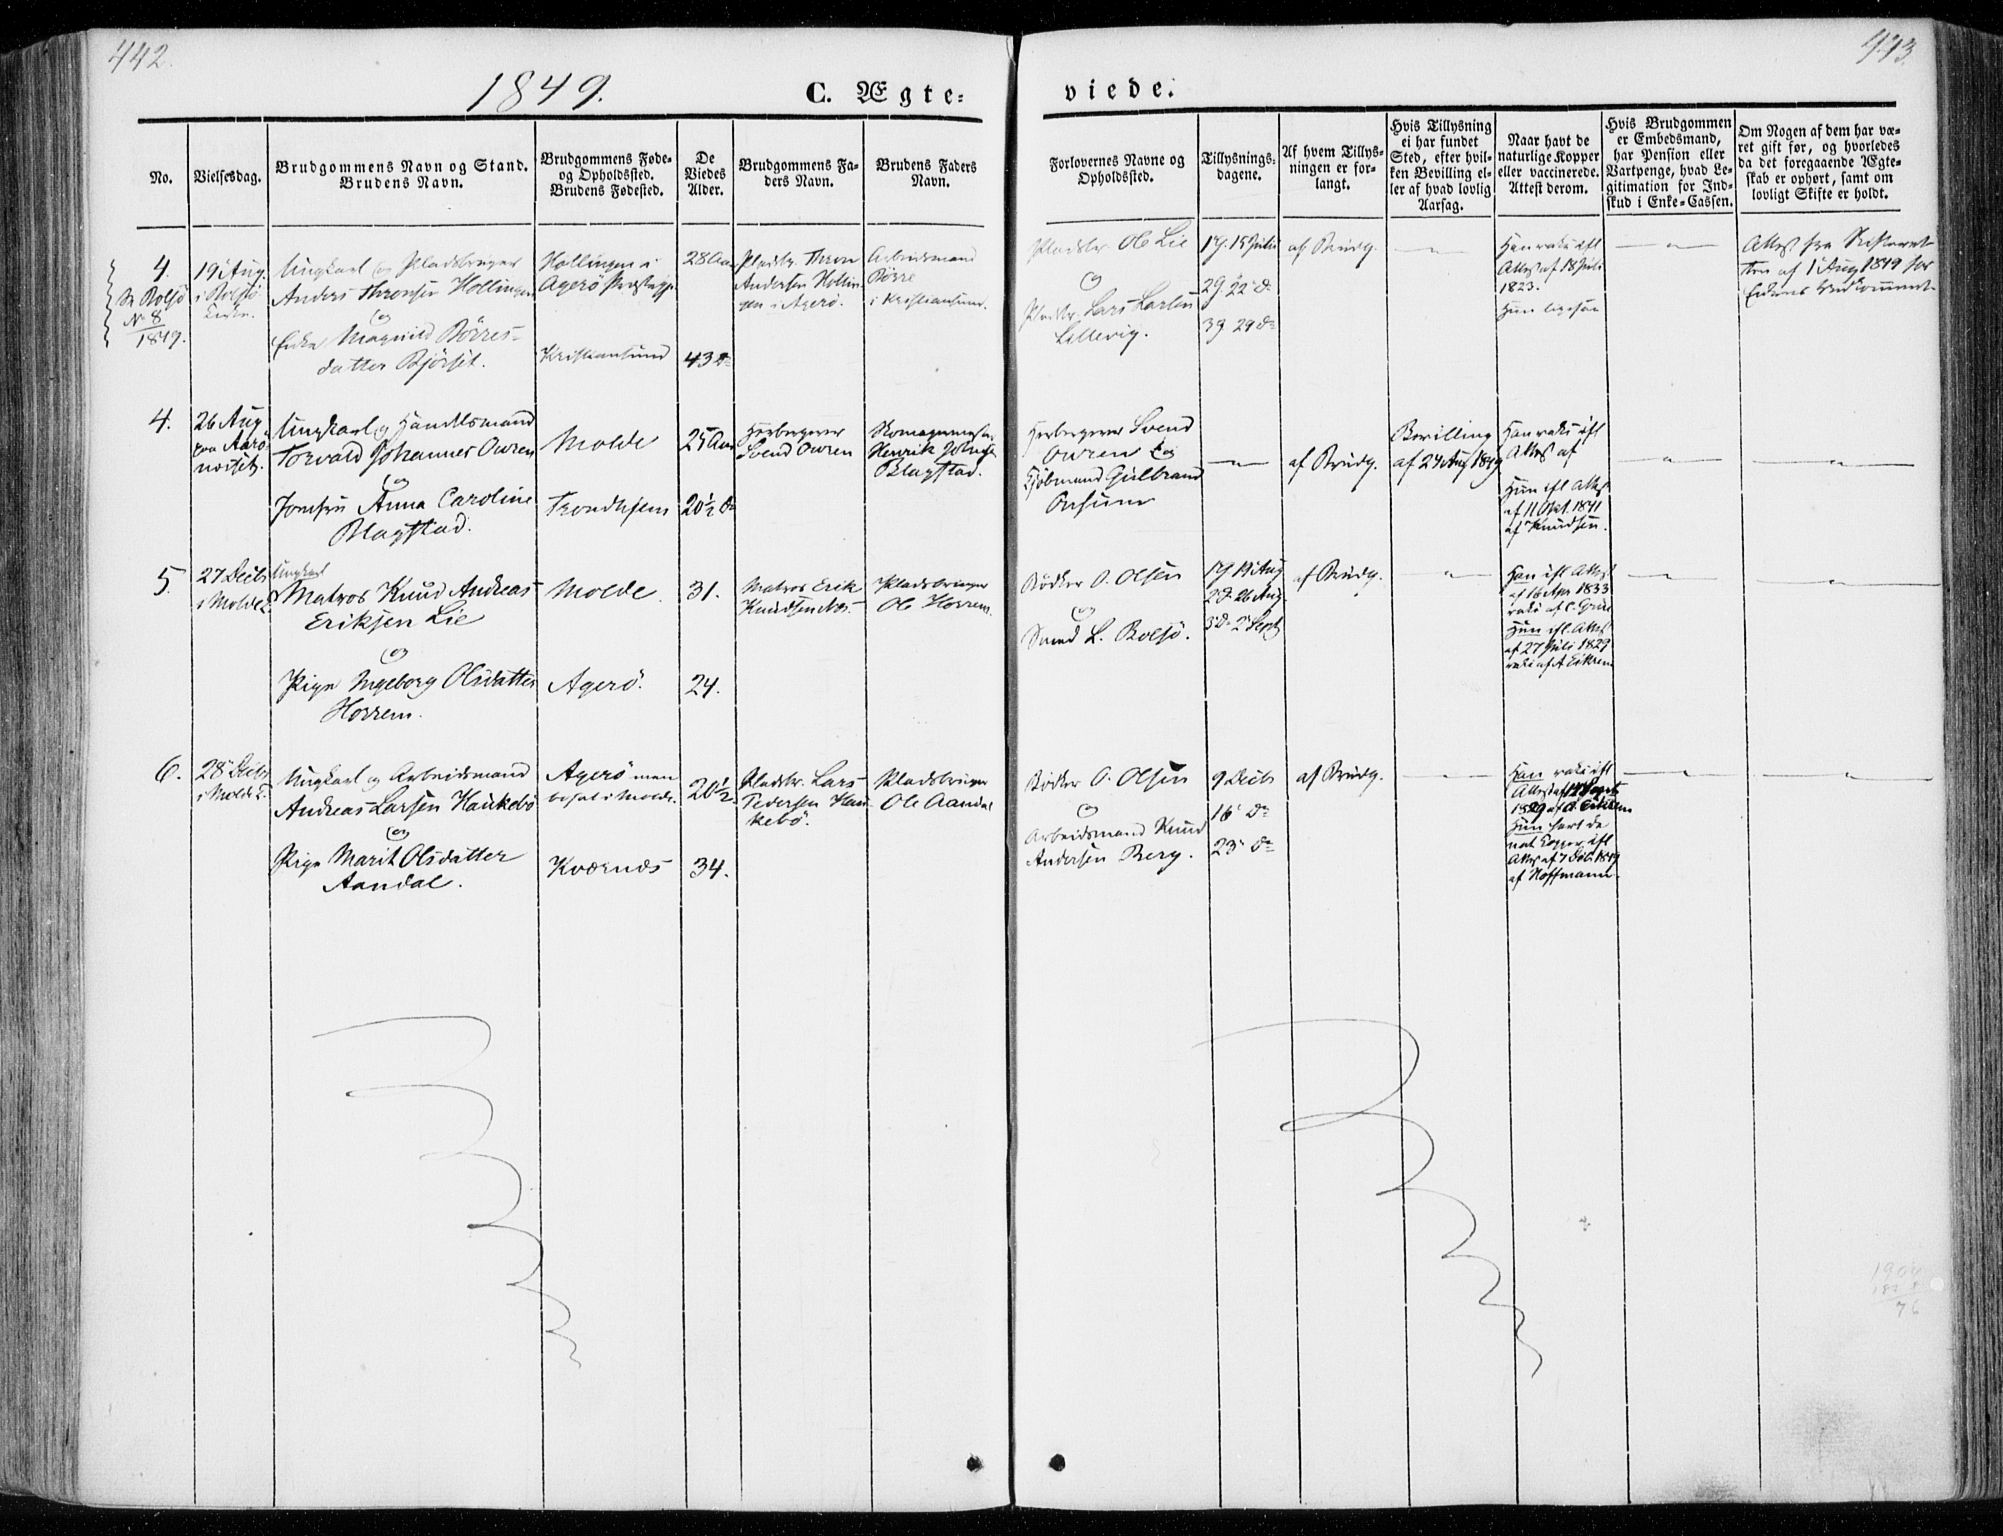 442.
443.
1849.
C. Ægte=
viede.
No.
Vielsesdag.
Brudgommens Navn og Stand.
Brudens Navn.
Brudgommens Føde=
og Opholdssted.
Brudens Fødested.
De
Viedes
Alder.
Brudgommens Fa=
ders Navn.
Brudens Faders
Navn.
Forlovernes Navne og
Opholdssted.
Tillysnings=
dagene.
Af hvem Tillys=
ningen er for=
langt.
Hvis Tillysning
ei har fundet
Sted, efter hvil=
ken Bevilling el=
ler af hvad lovlig
Aarsag.
Naar havt de
naturlige Kopper
eller vaccinerede.
Attest derom.
Hvis Brudgommen
er Embedsmand,
har Pension eller
Vartpenge, hvad Le=
gitimation for Ind=
skud i Enke=Cassen.
Om Nogen af dem har væ=
ret gift før, og hvorledes
da det foregaaende Ægte=
skab er ophørt, samt om
lovligt Skifte er holdt.
4.
Bolsö
No 8
1849.
19 Aug.
i Bolsö
Kirke.
Ungkarl og Pladsbruger
Anders Thronsen Hollingen
og
Enke Magnild Börres-
datter Bjørset.
Hollingen i
Agerö Præstegj.
Kristiansund
28 Aar
43 Do
Pladsbr. Thron
Andersen Hollin-
gen i Agerö.
Arbeidsmand
Börre
i Kristiansund.
Pladsbr. Ole Lie
og
Pladsbr. Lars Larsen
Lillevig.
1 g. 15 Juli
2 g. 22 Do
3 g. 29 Do
af Brudg.
Han vakc. ifl
Attest af 18 Juli
1823.
Hun ligesaa
Attest fra Skifteret
ten af 1 Aug 1849 for
4.
26 Aug.
paa Aarö
Ungkarl og Handelsmand
Torvald Johannes Owren
og
Jomfru Anna Caroline
Blagstad.
Molde
Trondhjem
25 Aar
20½ Do
Herbergerer
Svend Owren
Skomagermester
Henrik Johnsen
Blagstad.
Herbergerer Svend
Owren og
Kjöbmand Gulbrand
Onsum
af Brudg.
Bevilling
af 24 Aug 1849
Han vakc. ifl
Attest af
Hun ifl Attest
af 11 Okt. 1841
af Knudsen.
5.
27 Decbr
i Molde K.
Ungkarl
Matros Knud Andreas
Eriksen Lie
og
Pige Ingeborg Olsdatter
Horrem.
Molde.
Agerö.
31.
24.
Matros Erik
Knudsen Næs.
Pladsbruger
Ole Horrem.
Bödker O. Olsen
og
Svend L. Bolsö.
1 g 19 Aug
2 D. 26 Aug.
3 D. 2 Sept
af Brudg.
Han ifl Attest
af 16 Apr 1833
vakc. af C. Grue
Hun ifl. Attest
af 27 Juli 1829
vakc. af A Eikrem
6.
28 Decbr
i Molde K.
Ungkarl og Arbeidsmand
Andreas Larsen Haukebö
og
Pige Marit Olsdatter
Aandal.
Agerö men
bosat i Molde.
Kværnæs
20½
34.
Pladsbr. Lars
Pedersen Hau
kebö.
Pladsbruger
Ole Aandal
Bödker O. Olsen
og
Arbeidsmand Knud
Andersen Berg.
9 Decbr
16 Do
23 Do
af Brudg.
Han vakc. ifl
Attest af 14 Sept
1829 af A. Eikrem
Hun havt de
nat. Kopper ifl
Attest af 7 Dec. 1849
af Hoffmann
1904
76